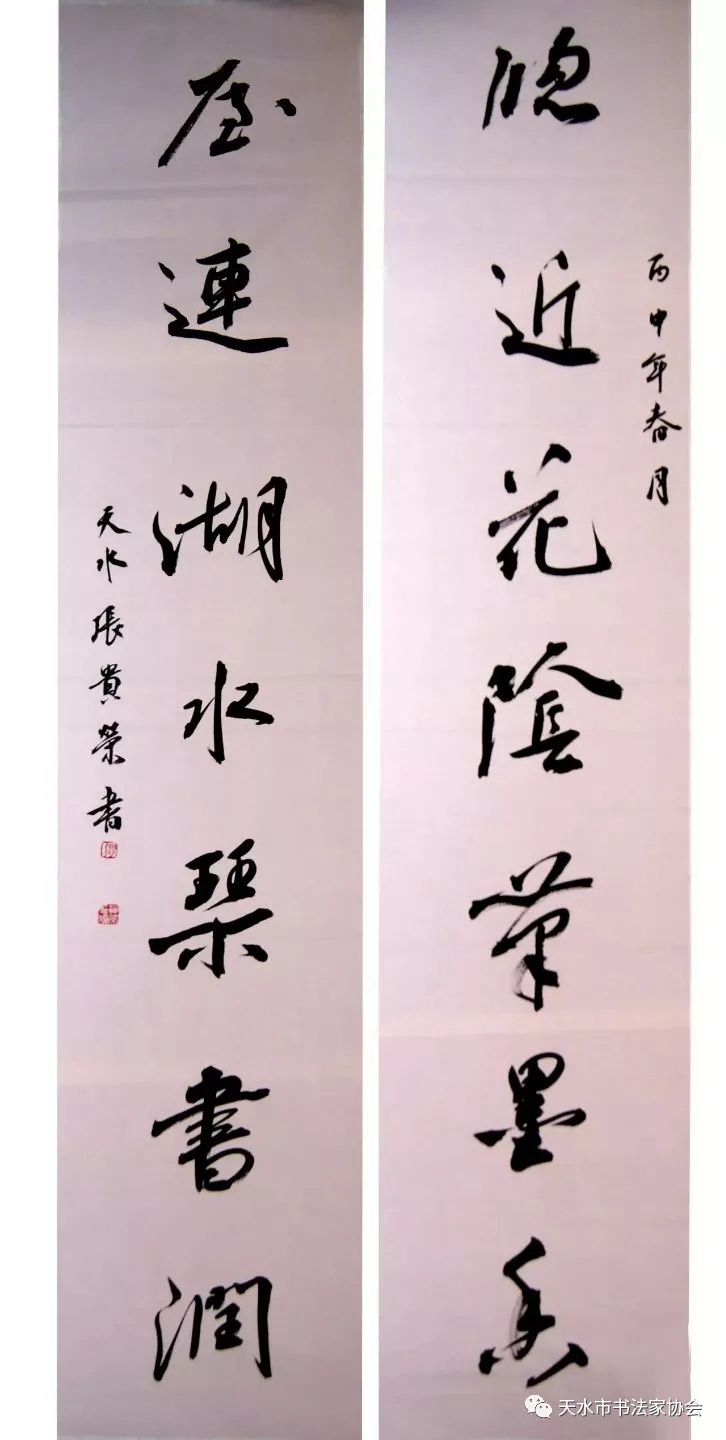 丙申年春月
牕近花陰筆墨香
屋連湖水琴書潤
天水張貴榮書
天水市书法家协会